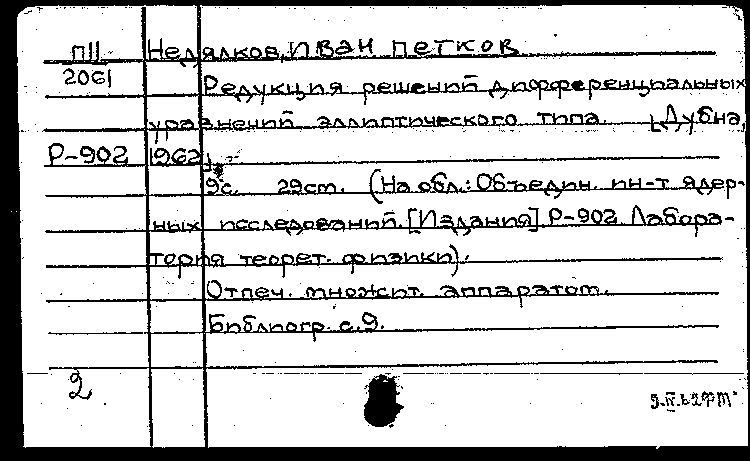 П11 Недялков, Иван Петков
2061
Редукция решений дифференциальных
уравнений эллиптического типа. [Дубна,
Р-902 1962].
9с. 29см. (На обл.: Объедин. ин-т ядер-
ных исследований. [Издания]. Р-902. Лабора-
тория теорет. физики).
Отпеч. множит. аппаратом.
Библиогр. с.9.
2